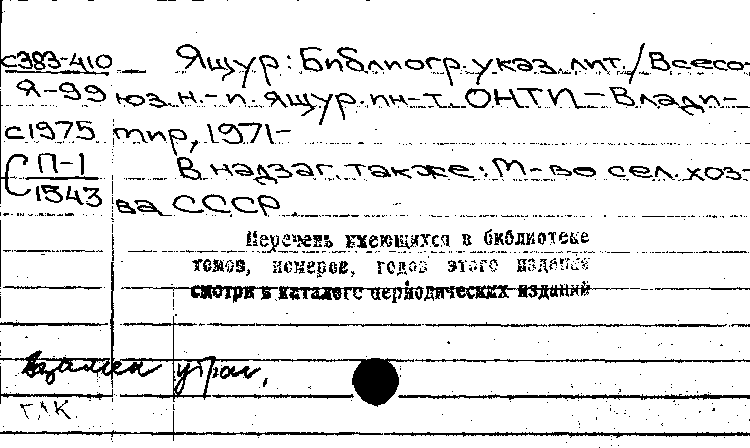 с383-410 Ящур: Библиогр. указ. лит. / Всесо-
Я-99 юз. н.-и. ящур. ин-т. ОНТИ - Влади-
с1975 мир, 1971-
П-1 В надзаг. также: М-во сел. хоз-
1543 ва СССР.
Перечень имеющихся в библиотеке
томов, номеров, годов этого издания
смотри в каталоге периодических изданий
Взамен утрач.
ГАК